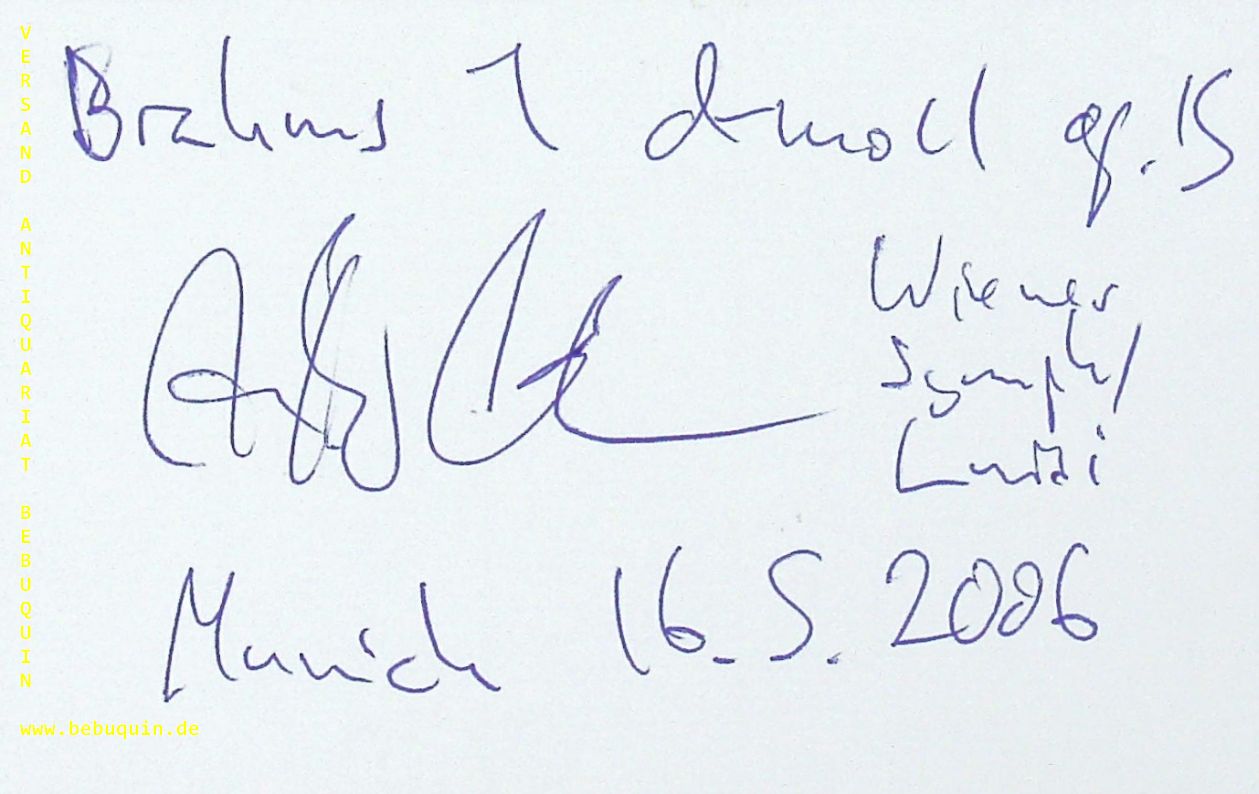 Brahms 1 d-moll op. 15
Wiener
Symph/
Luisi
Munich 16. 5. 2006
VERSAND ANTIQUARIAT BEBUQUIN
www.bebuquin.de